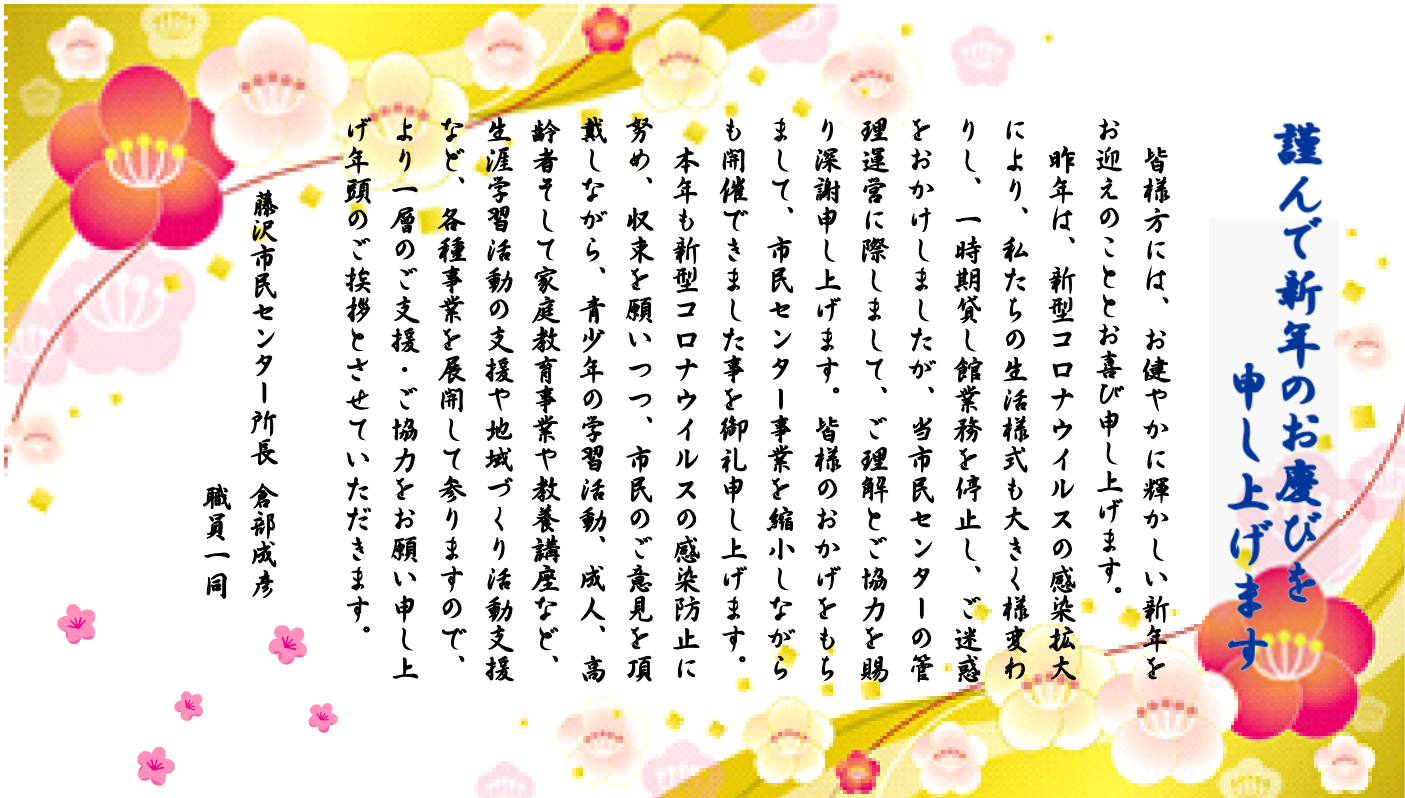 謹んで新年のお慶びを
申し上げます
皆様方には、お健やかに輝かしい新年を
お迎えのこととお喜び申し上げます。
昨年は、新型コロナウイルスの感染拡大
により、私たちの生活様式も大きく様変わ
りし、一時期貸し館業務を停止し、ご迷惑
をおかけしましたが、当市民センターの管
理運営に際しまして、ご理解とご協力を賜
り深謝申し上げます。皆様のおかげをもち
まして、市民センター事業を縮小しながら
も開催できました事を御礼申し上げます。
本年も新型コロナウイルスの感染防止に
努め、収束を願いつつ、市民のご意見を頂
戴しながら、青少年の学習活動、成人、高
齢者そして家庭教育事業や教養講座など、
生涯学習活動の支援や地域づくり活動支援
など、各種事業を展開して参りますので、
より一層のご支援・ご協力をお願い申し上
げ年頭のご挨拶とさせていただきます。
藤沢市民センター所長 倉部成彦
職員一同